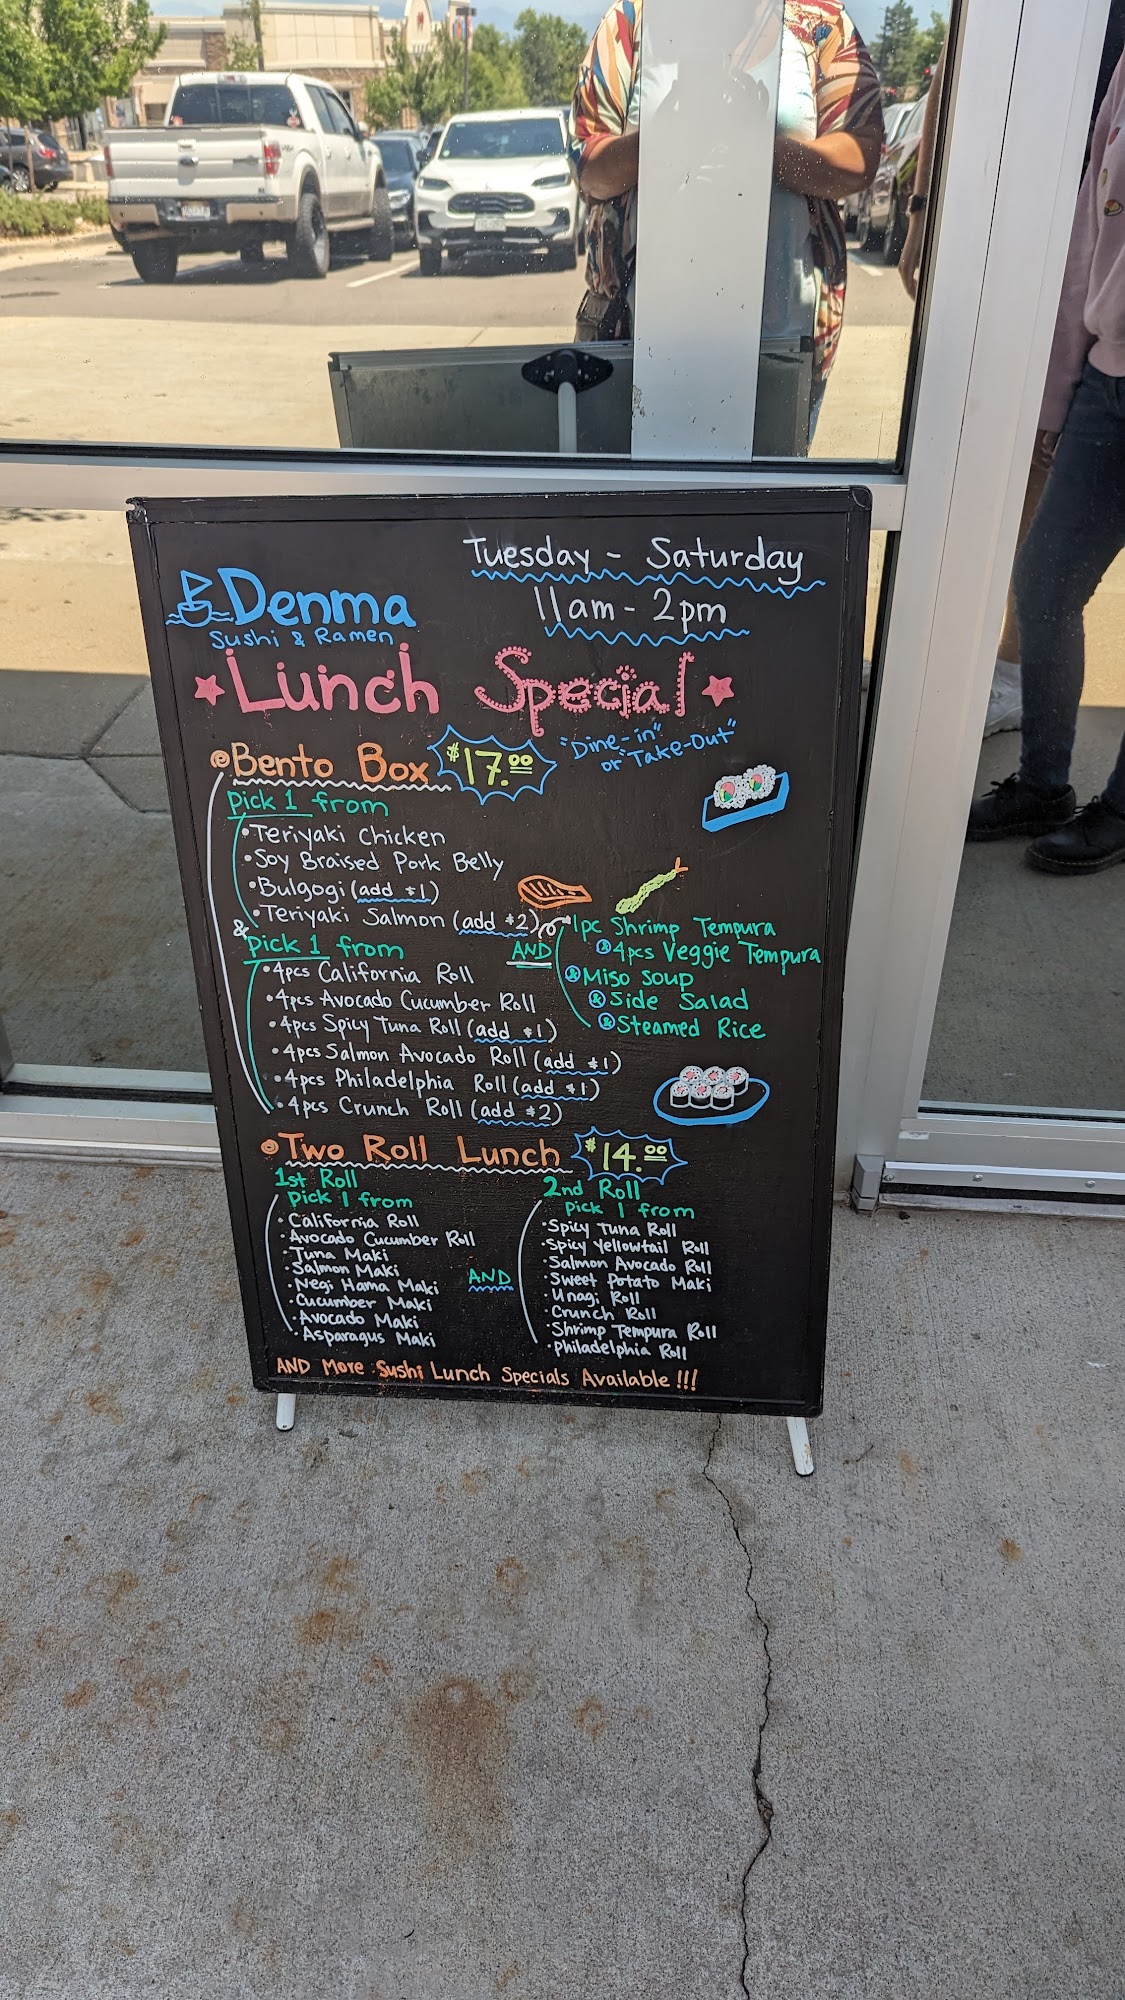 Tuesday - Saturday
11am - 2pm
Denma
Sushi & Ramen
Lunch Special
"Dine-in"
or "Take-Out"
Bento Box $17.00
pick 1 from
• Teriyaki Chicken
• Soy Braised Pork Belly
• Bulgogi (add $1)
• Teriyaki Salmon (add $2)
& pick 1 from
• 4pcs California Roll
• 4pcs Avocado Cucumber Roll
• 4pcs Spicy Tuna Roll (add $1)
• 4pcs Salmon Avocado Roll (add $1)
• 4pcs Philadelphia Roll (add $1)
• 4pcs Crunch Roll (add $2)
AND
1pc Shrimp Tempura
& 4pcs Veggie Tempura
& Miso Soup
& Side Salad
& Steamed Rice
Two Roll Lunch $14.00
1st Roll
pick 1 from
• California Roll
• Avocado Cucumber Roll
• Tuna Maki
• Salmon Maki
• Negi Hama Maki
• Cucumber Maki
• Avocado Maki
• Asparagus Maki
AND
2nd Roll
pick 1 from
• Spicy Tuna Roll
• Spicy Yellowtail Roll
• Salmon Avocado Roll
• Sweet Potato Maki
• Unagi Roll
• Crunch Roll
• Shrimp Tempura Roll
• Philadelphia Roll
AND More Sushi Lunch Specials Available !!!